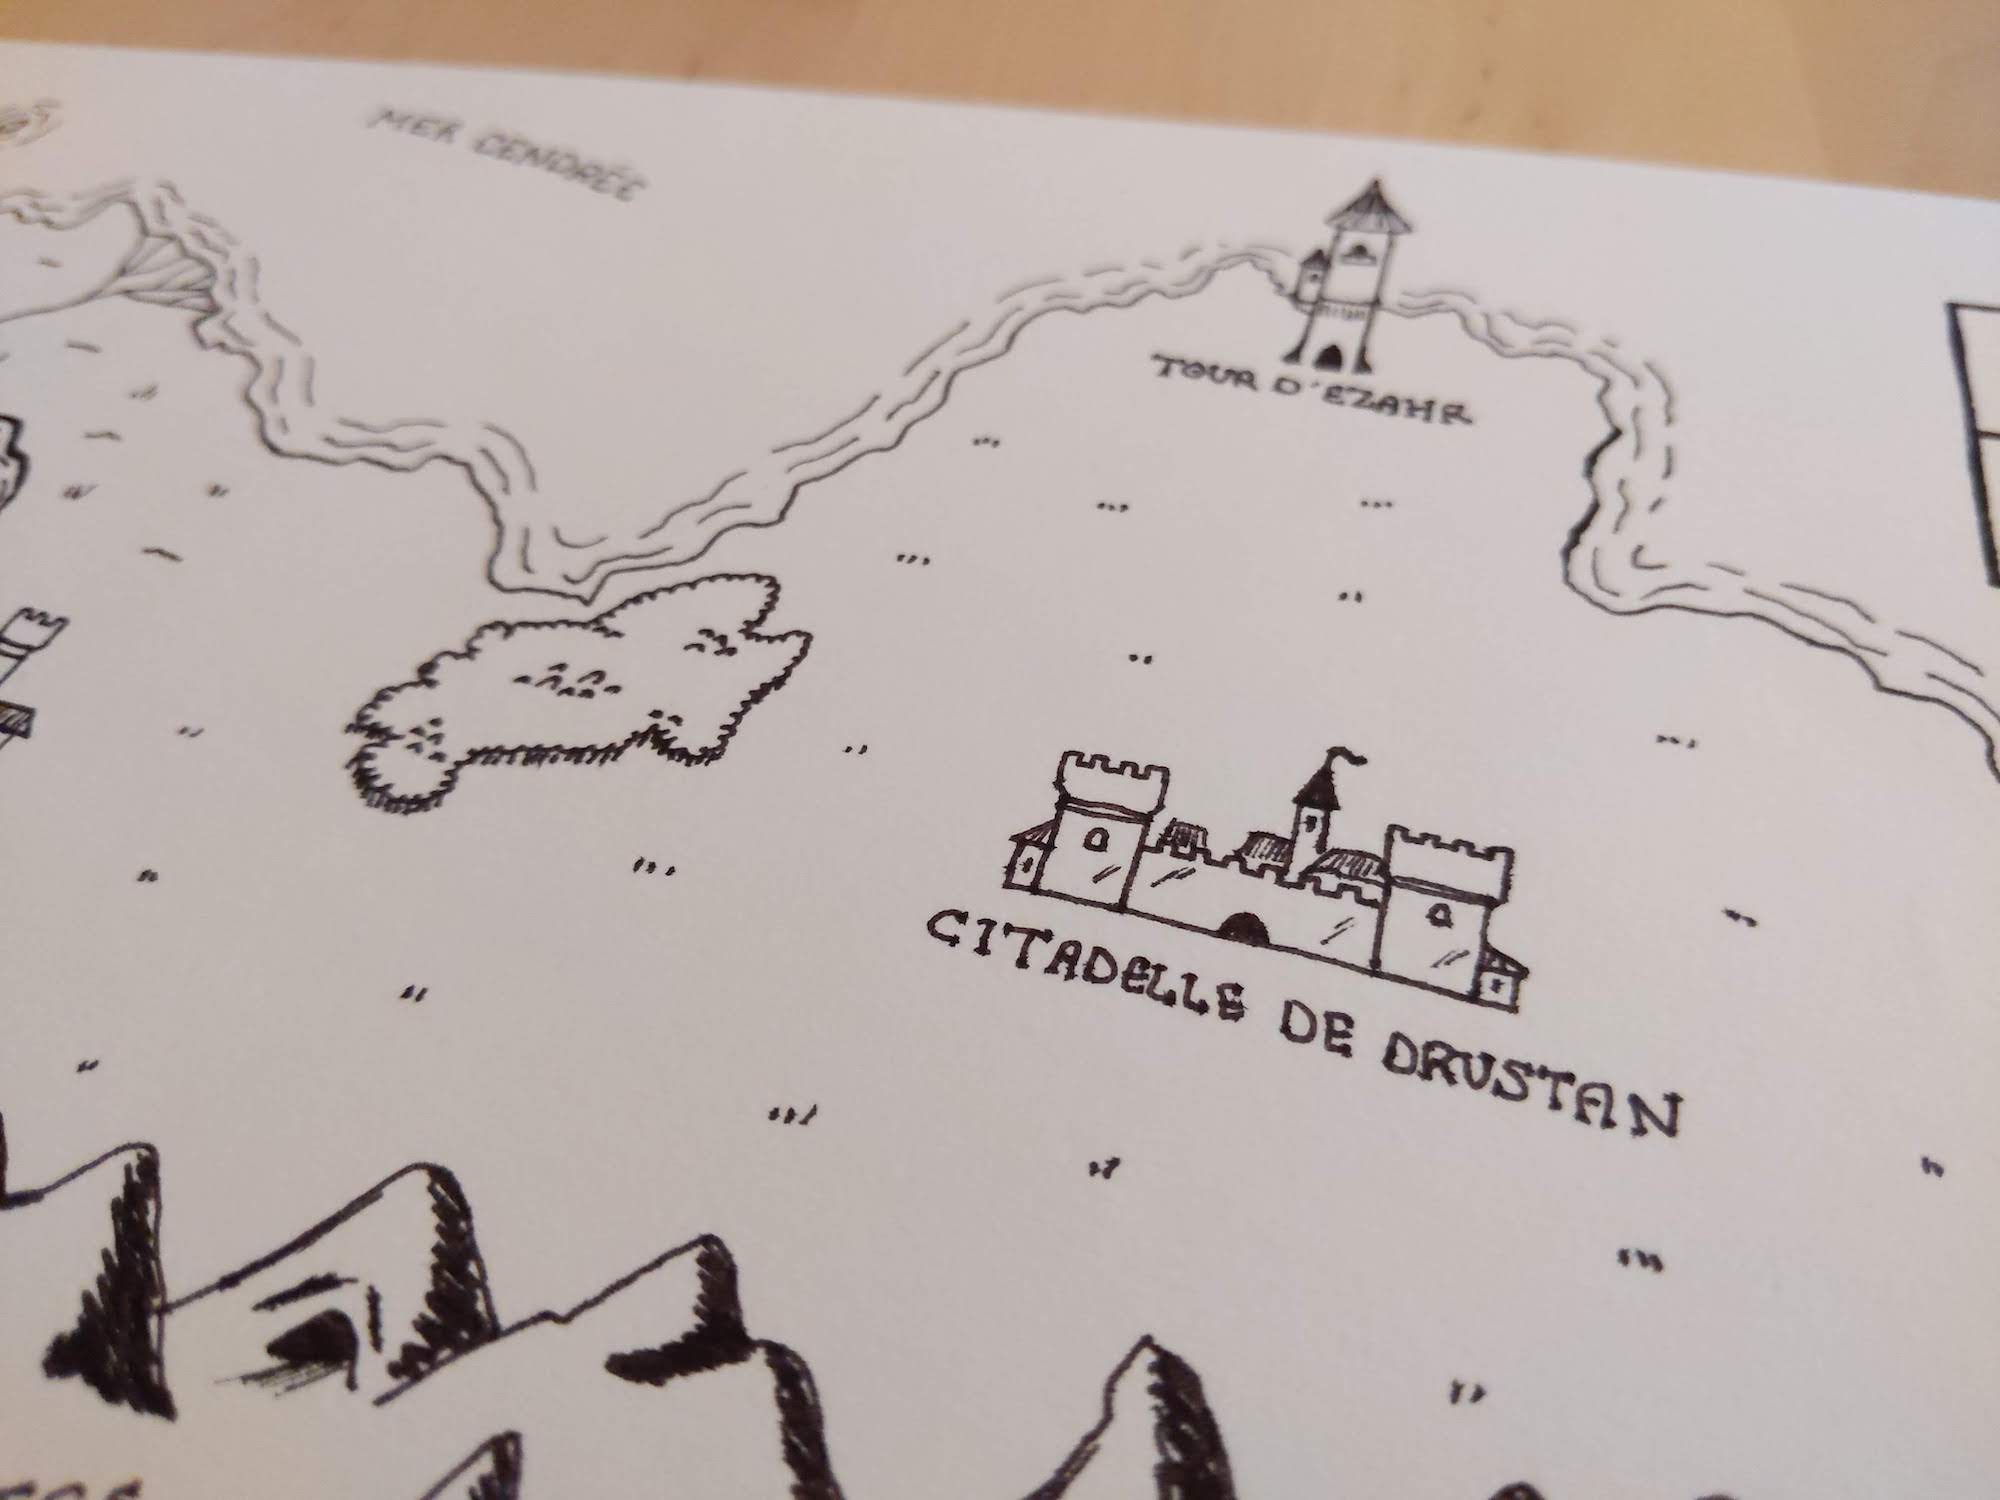 MER CENDRÉE
TOUR D'EZAHR
CITADELLE DE DRUSTAN